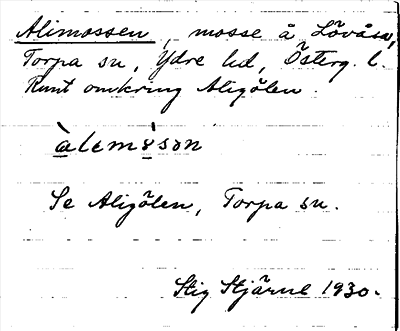 Alimossen, mosse å Lövåsa,
Torpa sn, Ydre hd, Österg. l.
Runt omkring Aligölen.
àlemòson
Se Aligölen, Torpa sn.
Stig Stjärne 1930.